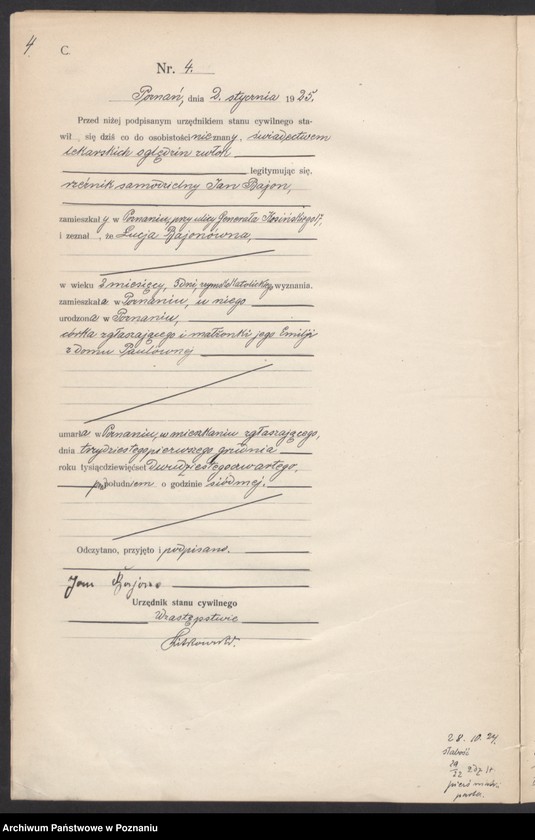 4
C.
Nr. 4.
Poznań, dnia 2. stycznia 1925.
Przed niżej podpisanym urzędnikiem stanu cywilnego sta-
wił się dziś co do osobistości nieznany, świadectwem
lekarskich oględzin zwłok
legitymując się,
rzeźnik samodzielny Jan Bajon,
zamieszkały w Poznaniu, przy ulicy Generała Kosińskiego 17,
i zeznał, że Łucja Bajonówna,
w wieku 2 miesięcy, 3 dni, rzymsko katolickiego wyznania.
zamieszkała w Poznaniu, u niego
urodzona w Poznaniu,
córka zgłaszającego i małżonki jego Emilji
z domu Paulównej
umarła w Poznaniu, w mieszkaniu zgłaszającego,
dnia trzydziestego pierwszego grudnia
roku tysiącdziewięćset dwudziestego czwartego,
południem o godzinie siódmej.
Odczytano, przyjęto i podpisano.
Jan Bajon
Urzędnik stanu cywilnego
W zastępstwie
28. 10. 24.
słabość
pierś
Archiwum Państwowe w Poznaniu